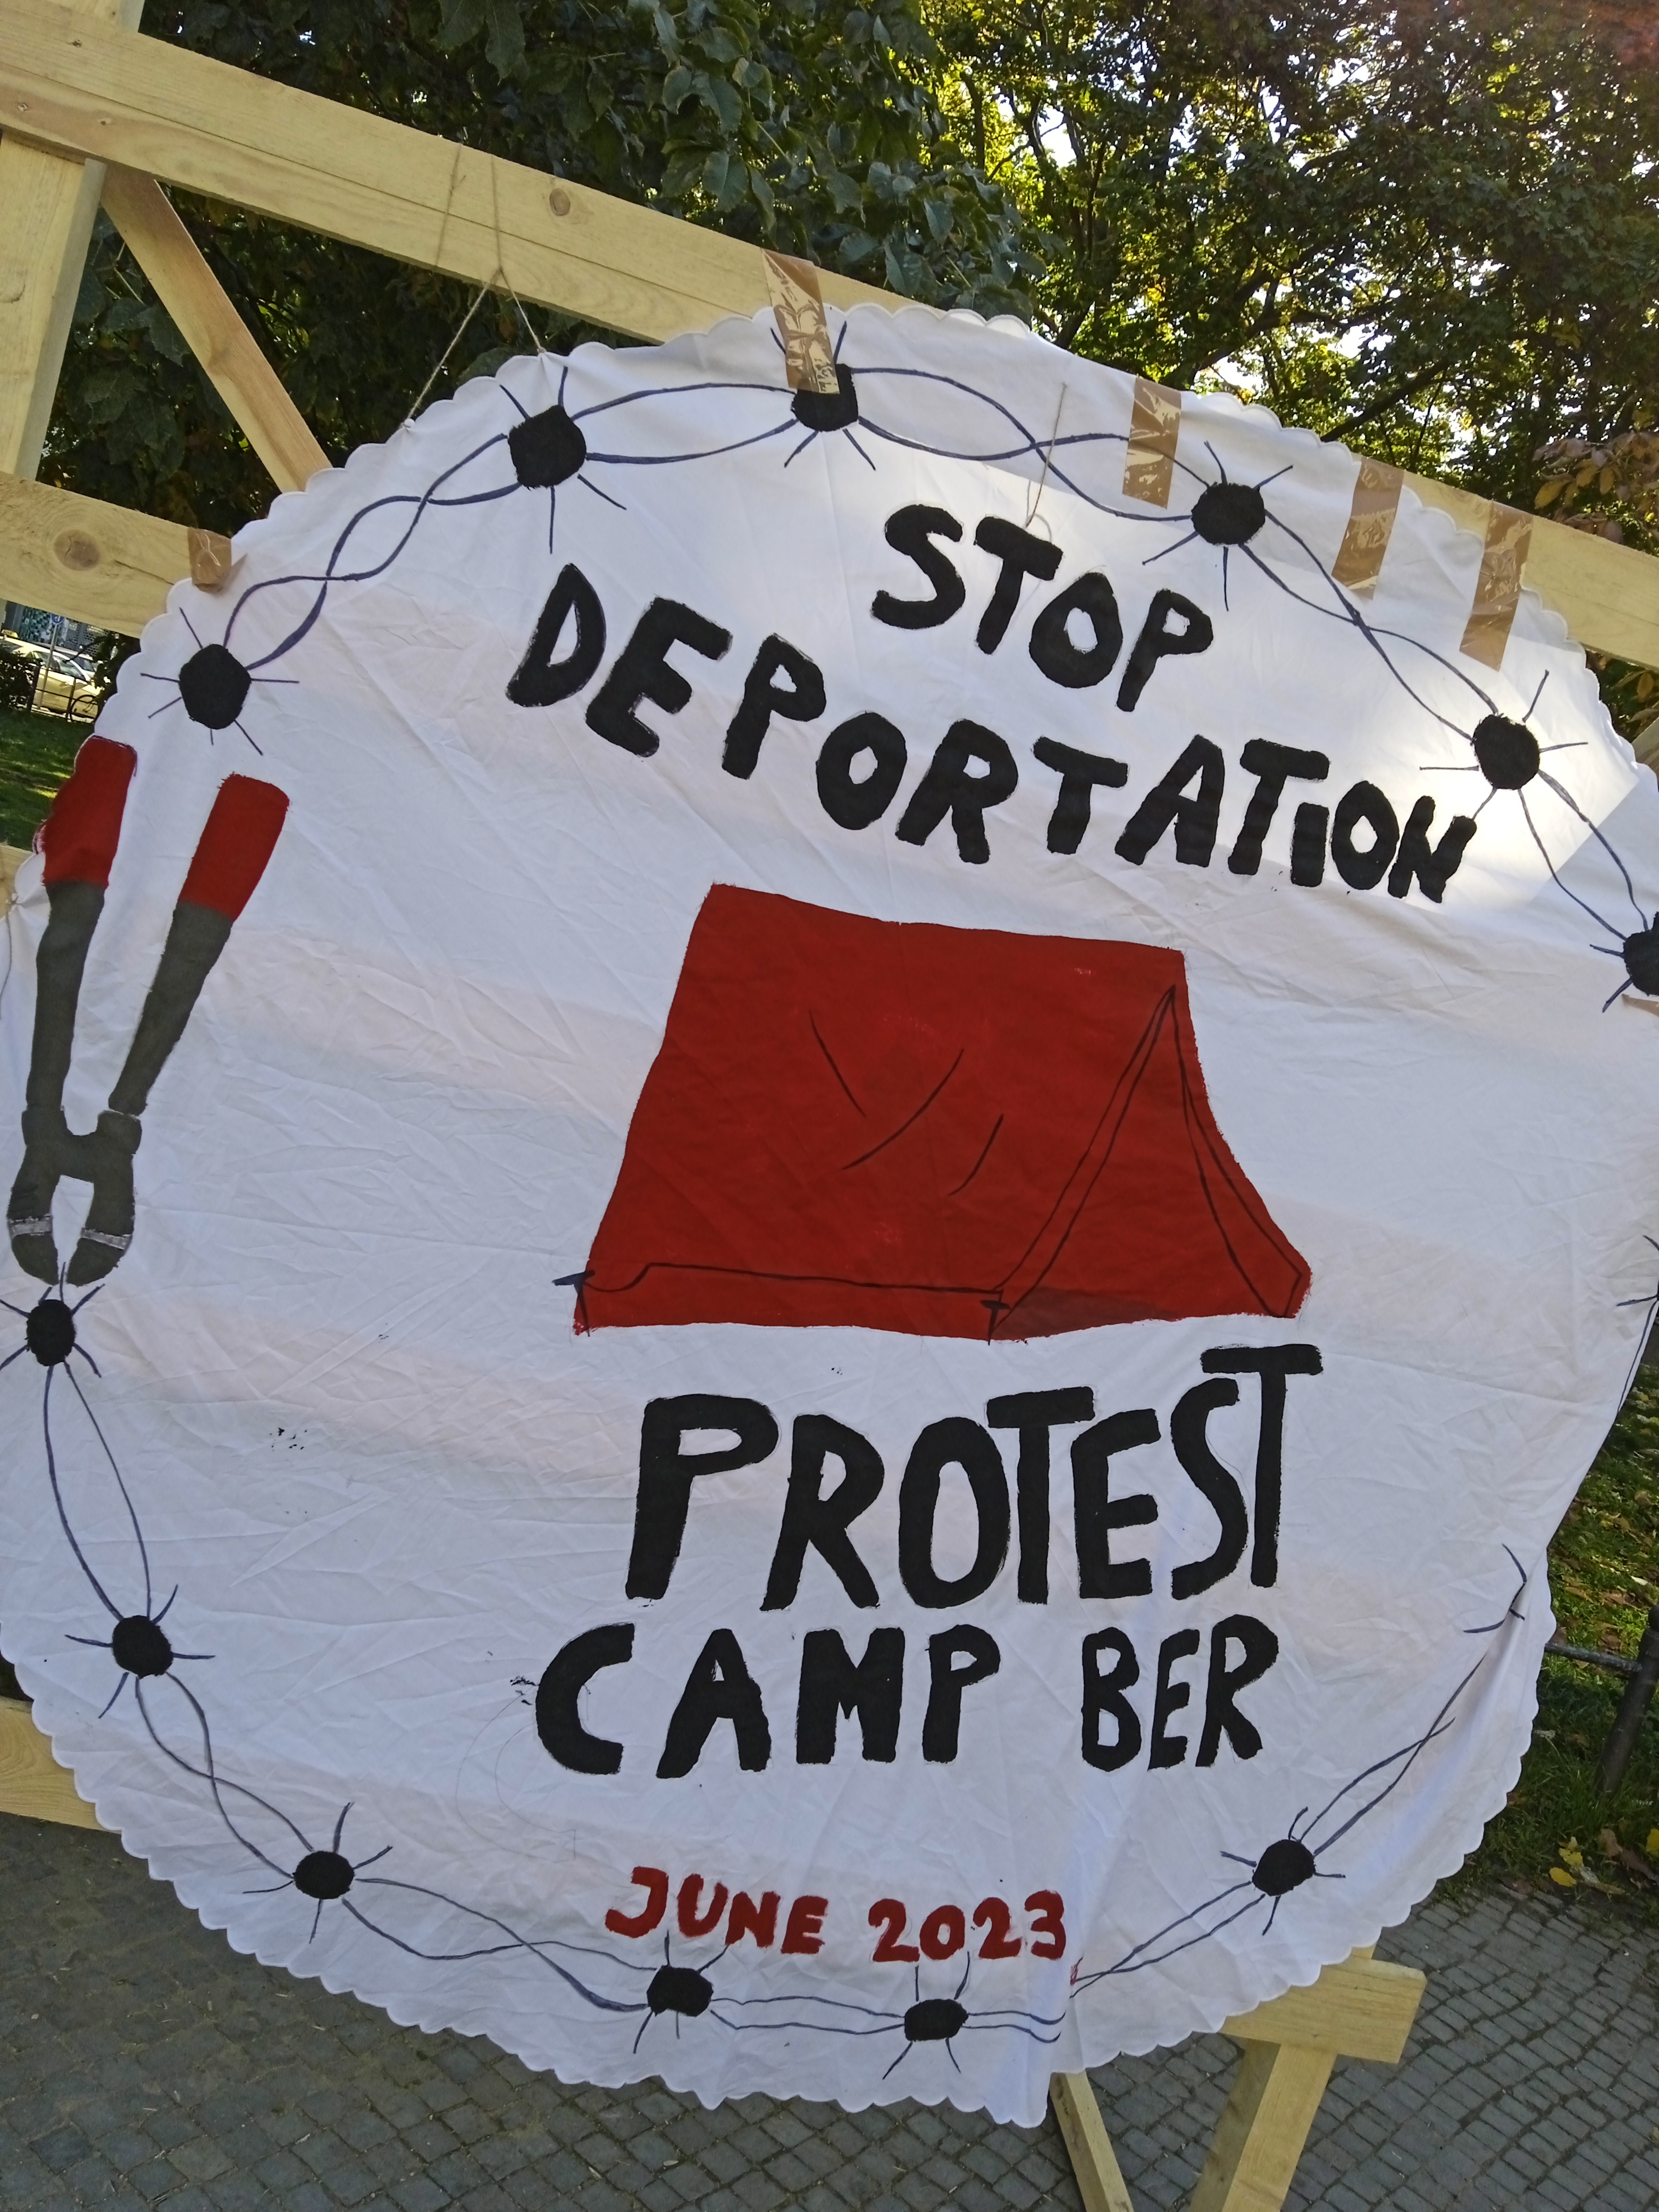 STOP
DEPORTATION
PROTEST
CAMP BER
JUNE 2023